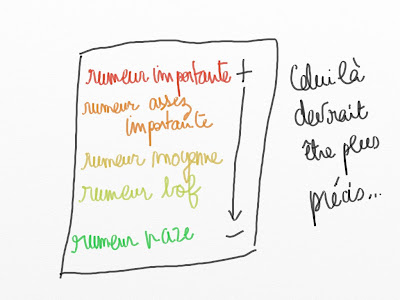 rumeur importante +
rumeur assez
importante
rumeur moyenne
rumeur bof
rumeur naze -
Celui là
devrait
être plus
précis...